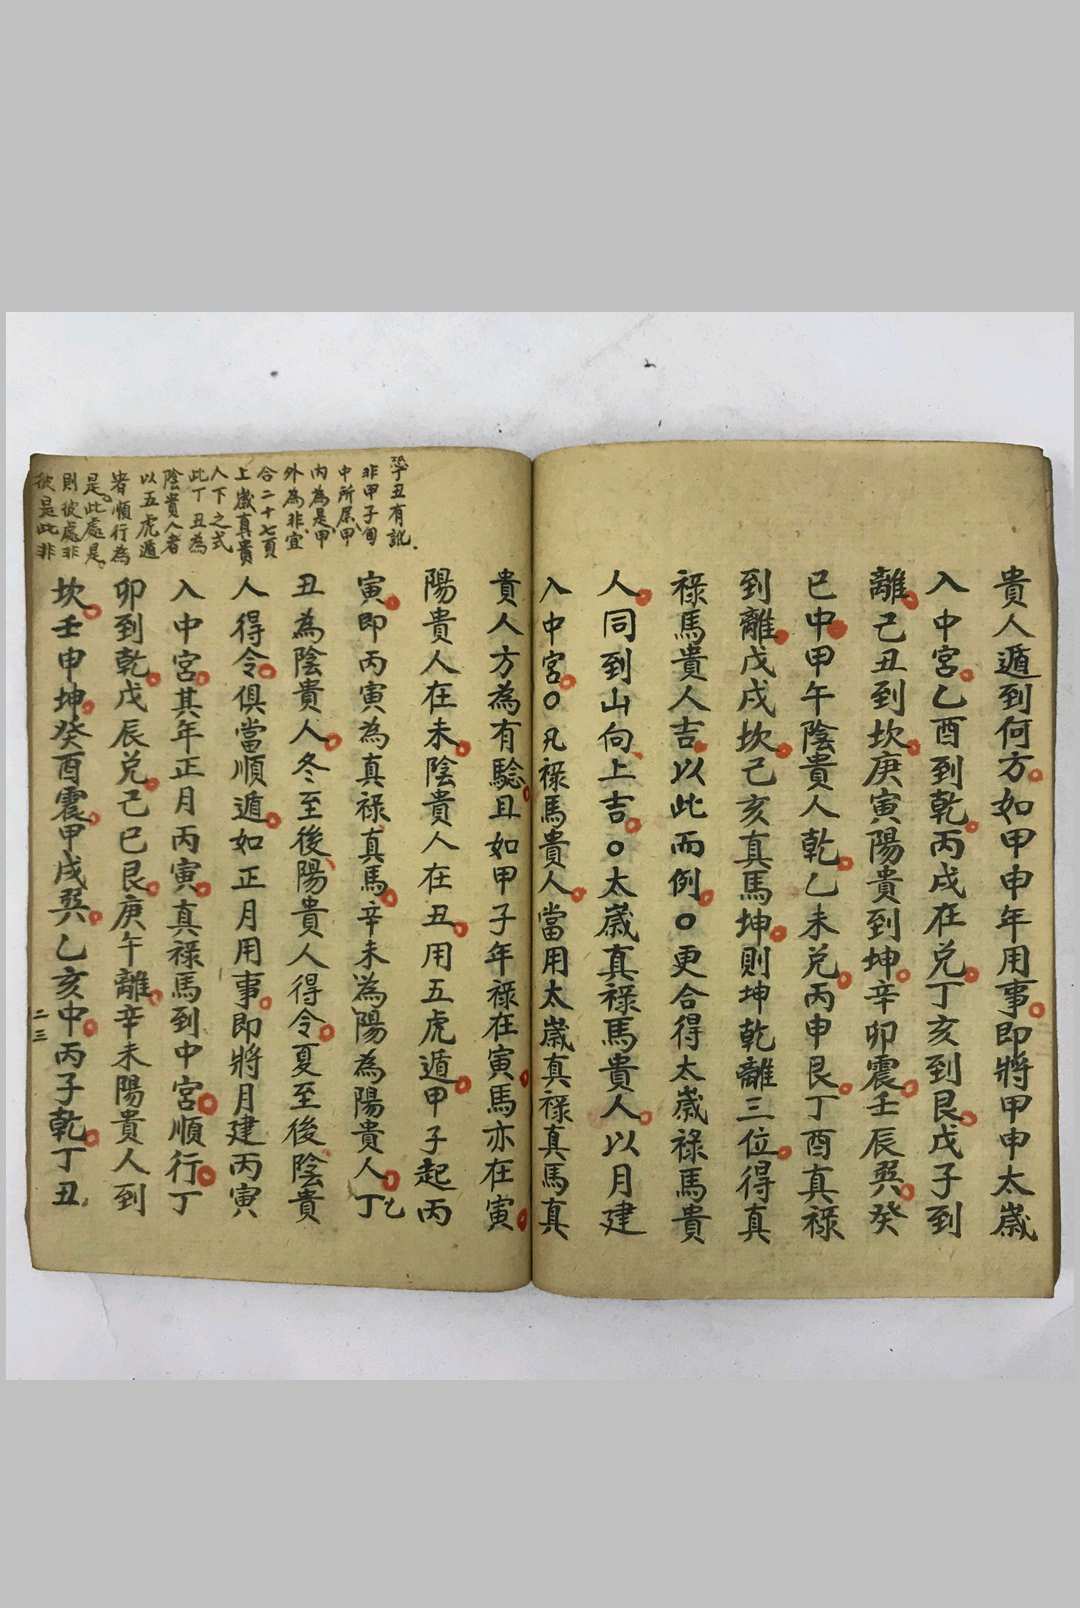 貴人遁到何方如甲申年用事即將甲申太歲
入中宮乙酉到乾丙戌在兌丁亥到艮戊子到
離己丑到坎庚寅陽貴到坤辛卯震壬辰巽癸
巳中甲午陰貴人乾乙未兌丙申艮丁酉真祿
到離戊戌坎己亥真馬坤則坤乾離三位得真
祿馬貴人吉以此而例〇更合得太歲祿馬貴
人同到山向上吉〇太歲真祿馬貴人以月建
入中宮〇凡祿馬貴人當用太歲真祿真馬真
貴人方為有驗且如甲子年祿在寅馬亦在寅
陽貴人在未陰貴人在丑用五虎遁甲子起丙
寅即丙寅為真祿真馬辛未為陽為陽貴人丁乙
丑為陰貴人冬至後陽貴人得令夏至後陰貴
人得令俱當順遁如正月用事即將月建丙寅
入中宮其年正月丙寅真祿馬到中宮順行丁
卯到乾戊辰兌己巳艮庚午離辛未陽貴人到
坎壬申坤癸酉震甲戌巽乙亥中丙子乾丁丑
恐丁丑有訛
非甲子旬
中所屬甲
內為是甲
外為非宜
合二十七頁
上歲真貴
人下之式
此丁丑為
陰貴人者
以五虎遁
者順行為
是此處是
則彼處非
彼是此非
二三